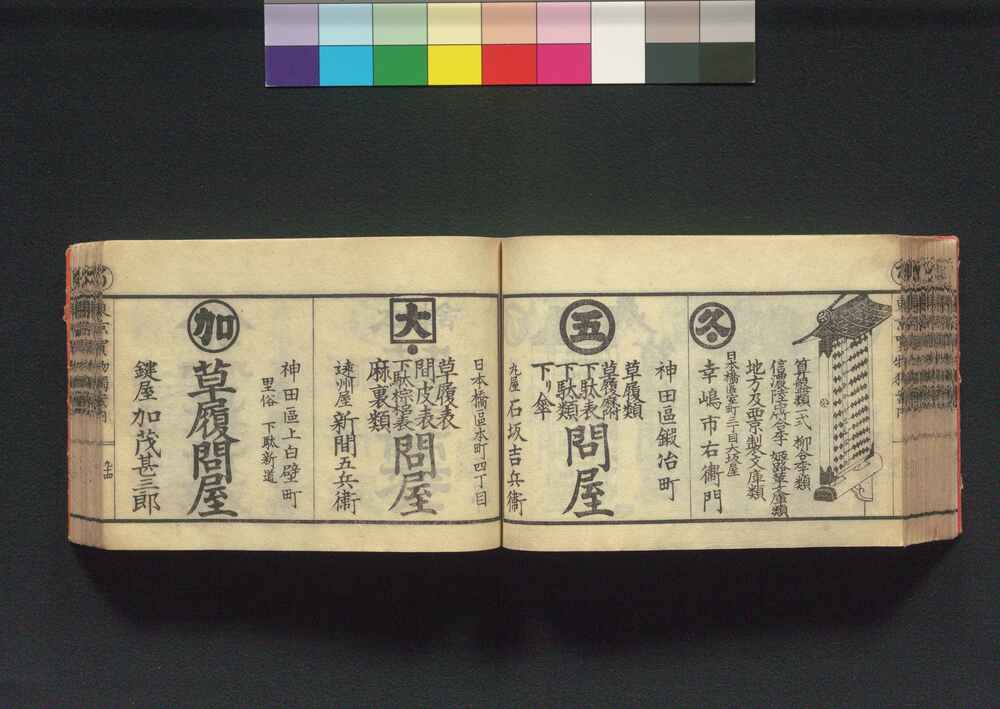 算盤類一式 柳合李類
信濃陸産合李 姫路革文庫類
地方及西京製文庫類
久
日本橋區室町三丁目大坂屋
幸嶋市右衞門
神田區鍛冶町
五
草履類
草履麻附
下駄表
下駄類
下り傘
問屋
丸屋 石坂吉兵衞
日本橋區本町四丁目
大
草履表
間皮表
下駄棕梠表
麻裏類
問屋
遠州屋 新間五兵衞
神田區上白壁町
里俗 下駄新道
加
草履問屋
鍵屋 加茂甚三郎